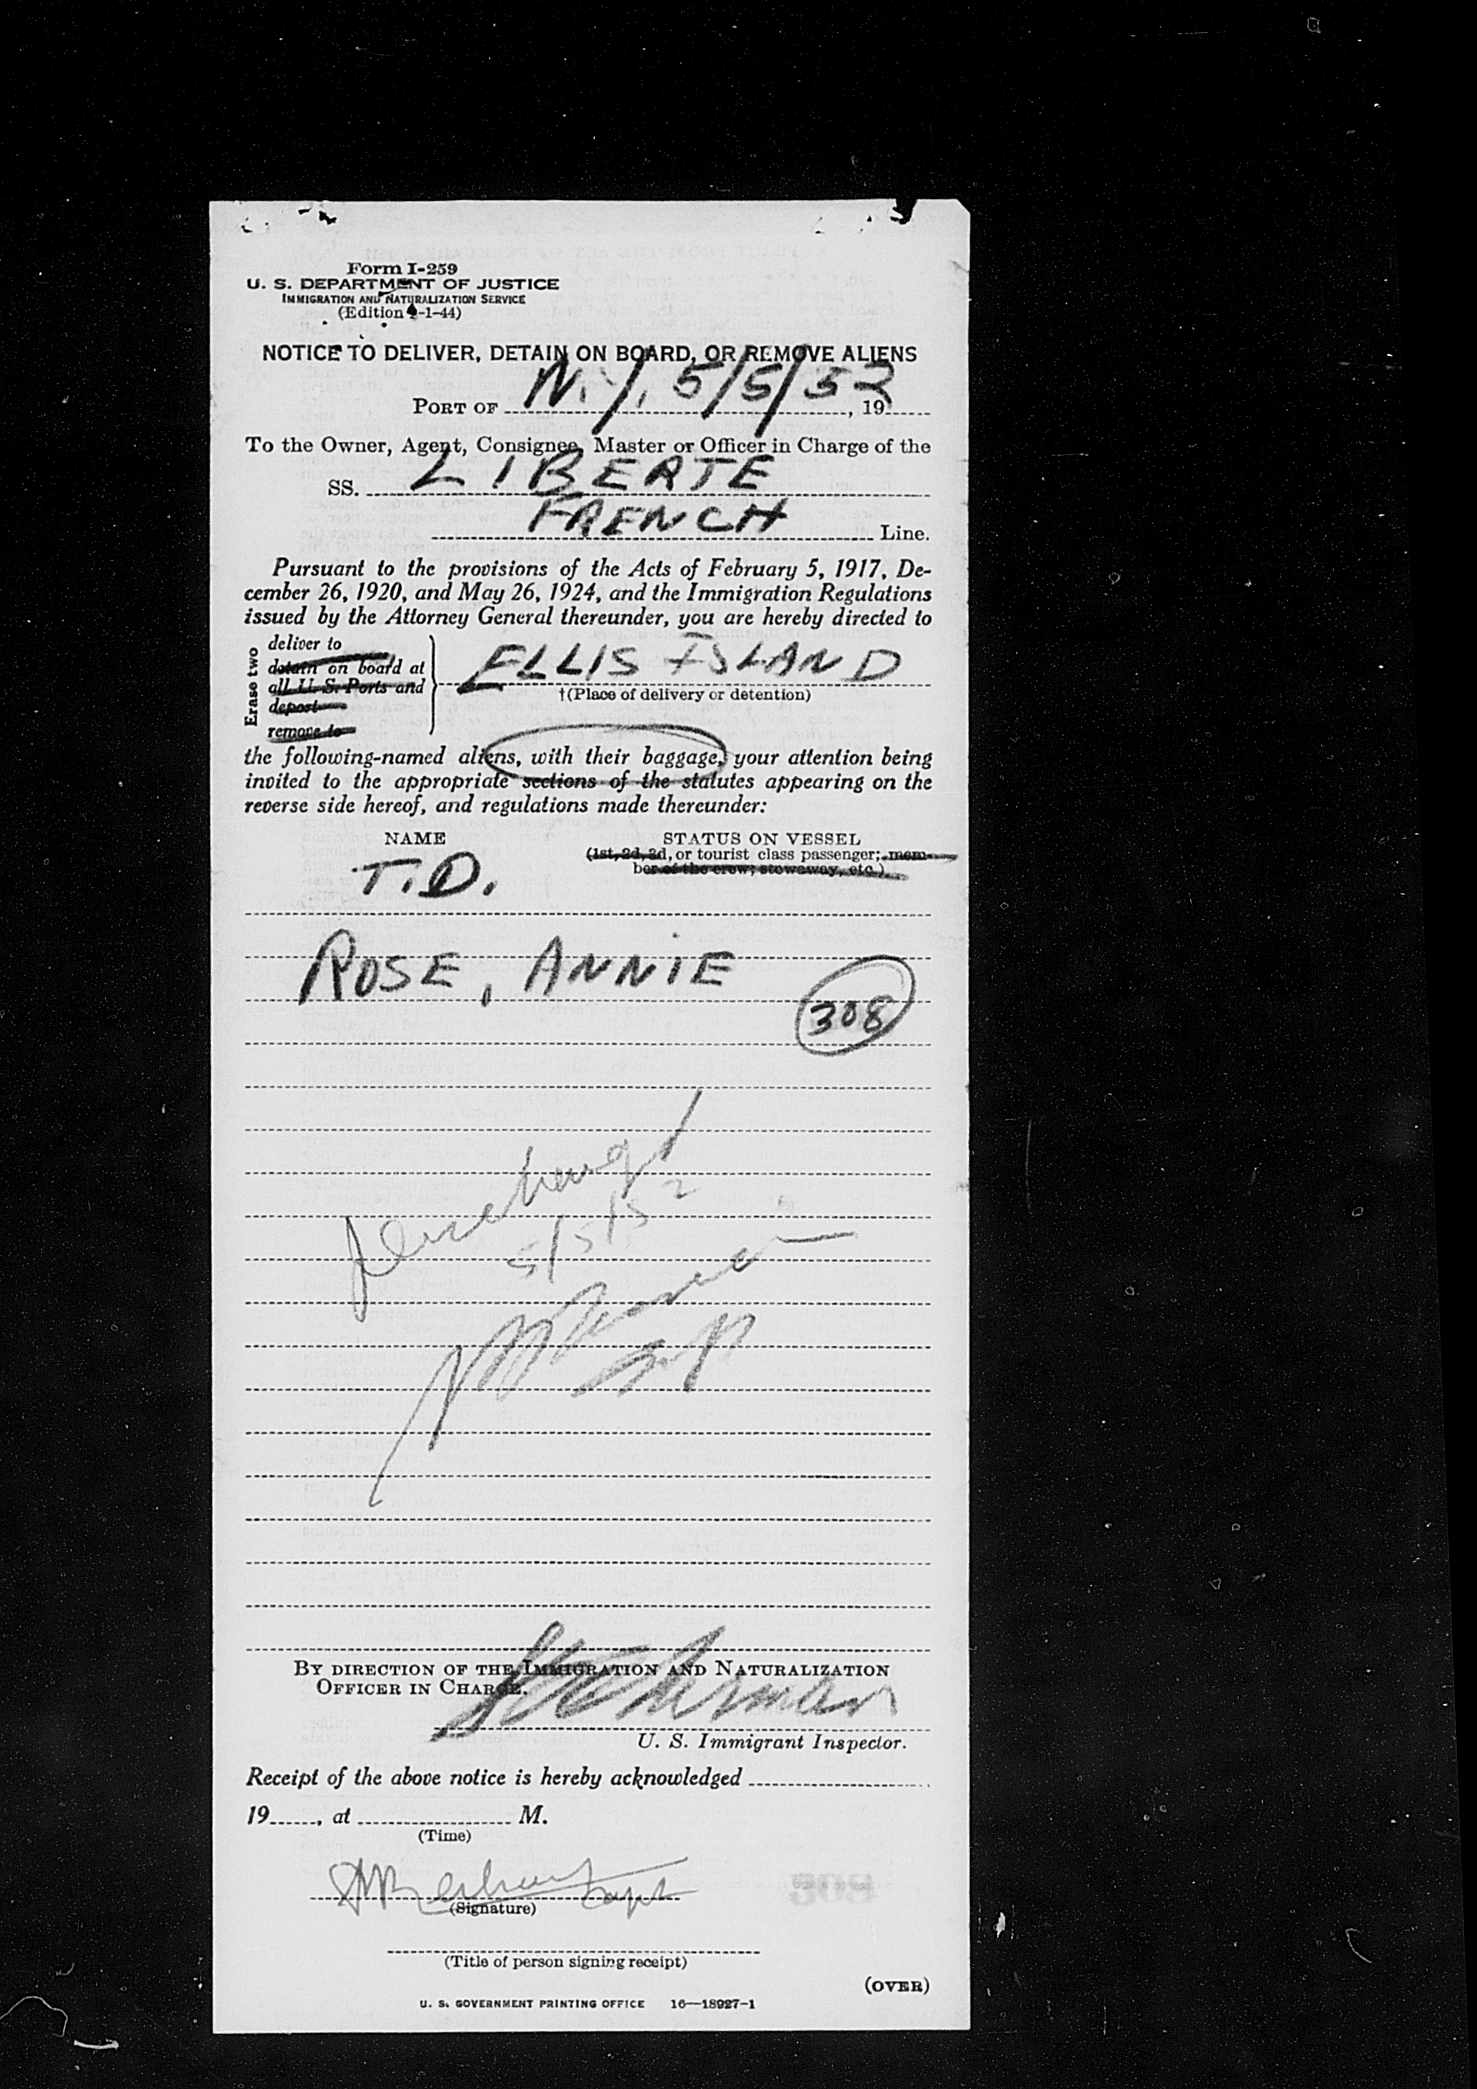 Form I-259
U. S. DEPARTMENT OF JUSTICE
IMMIGRATION AND NATURALIZATION SERVICE
(Edition -1-44)
NOTICE TO DELIVER, DETAIN ON BOARD, OR REMOVE ALIENS
PORT OF N.Y. 5/5/52, 19
To the Owner, Agent, Consignee, Master or Officer in Charge of the
SS. LIBERTE
FRENCH Line.
Pursuant to the provisions of the Acts of February 5, 1917, De-
cember 26, 1920, and May 26, 1924, and the Immigration Regulations
issued by the Attorney General thereunder, you are hereby directed to
Erase two
deliver to
detain on board at
all U. S. Ports and
deport
remove to
ELLIS ISLAND
†(Place of delivery or detention)
the following-named aliens, with their baggage, your attention being
invited to the appropriate sections of the statutes appearing on the
reverse side hereof, and regulations made thereunder:
NAME STATUS ON VESSEL
(1st, 2d, 3d, or tourist class passenger; mem-
ber of the crew; stowaway, etc.)
T.D.
ROSE, ANNIE
308
5/5/52
BY DIRECTION OF THE IMMIGRATION AND NATURALIZATION
OFFICER IN CHARGE.
U. S. Immigrant Inspector.
Receipt of the above notice is hereby acknowledged
19, at M.
(Time)
(Signature)
(Title of person signing receipt)
(OVER)
U. S. GOVERNMENT PRINTING OFFICE 16—18927-1